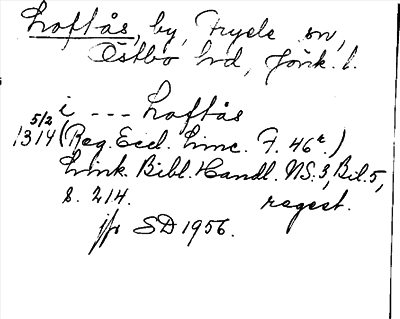 Loftås, by, Fryele sn,
Östbo hd, Jönk. l.
i --- Loftås
5/2
1314 (Reg. Eccl. Linc. F. 46r.)
Link. Bibl. Handl. NS: 3, Bil. 5,
s. 214. regest.
jfr SD 1956.